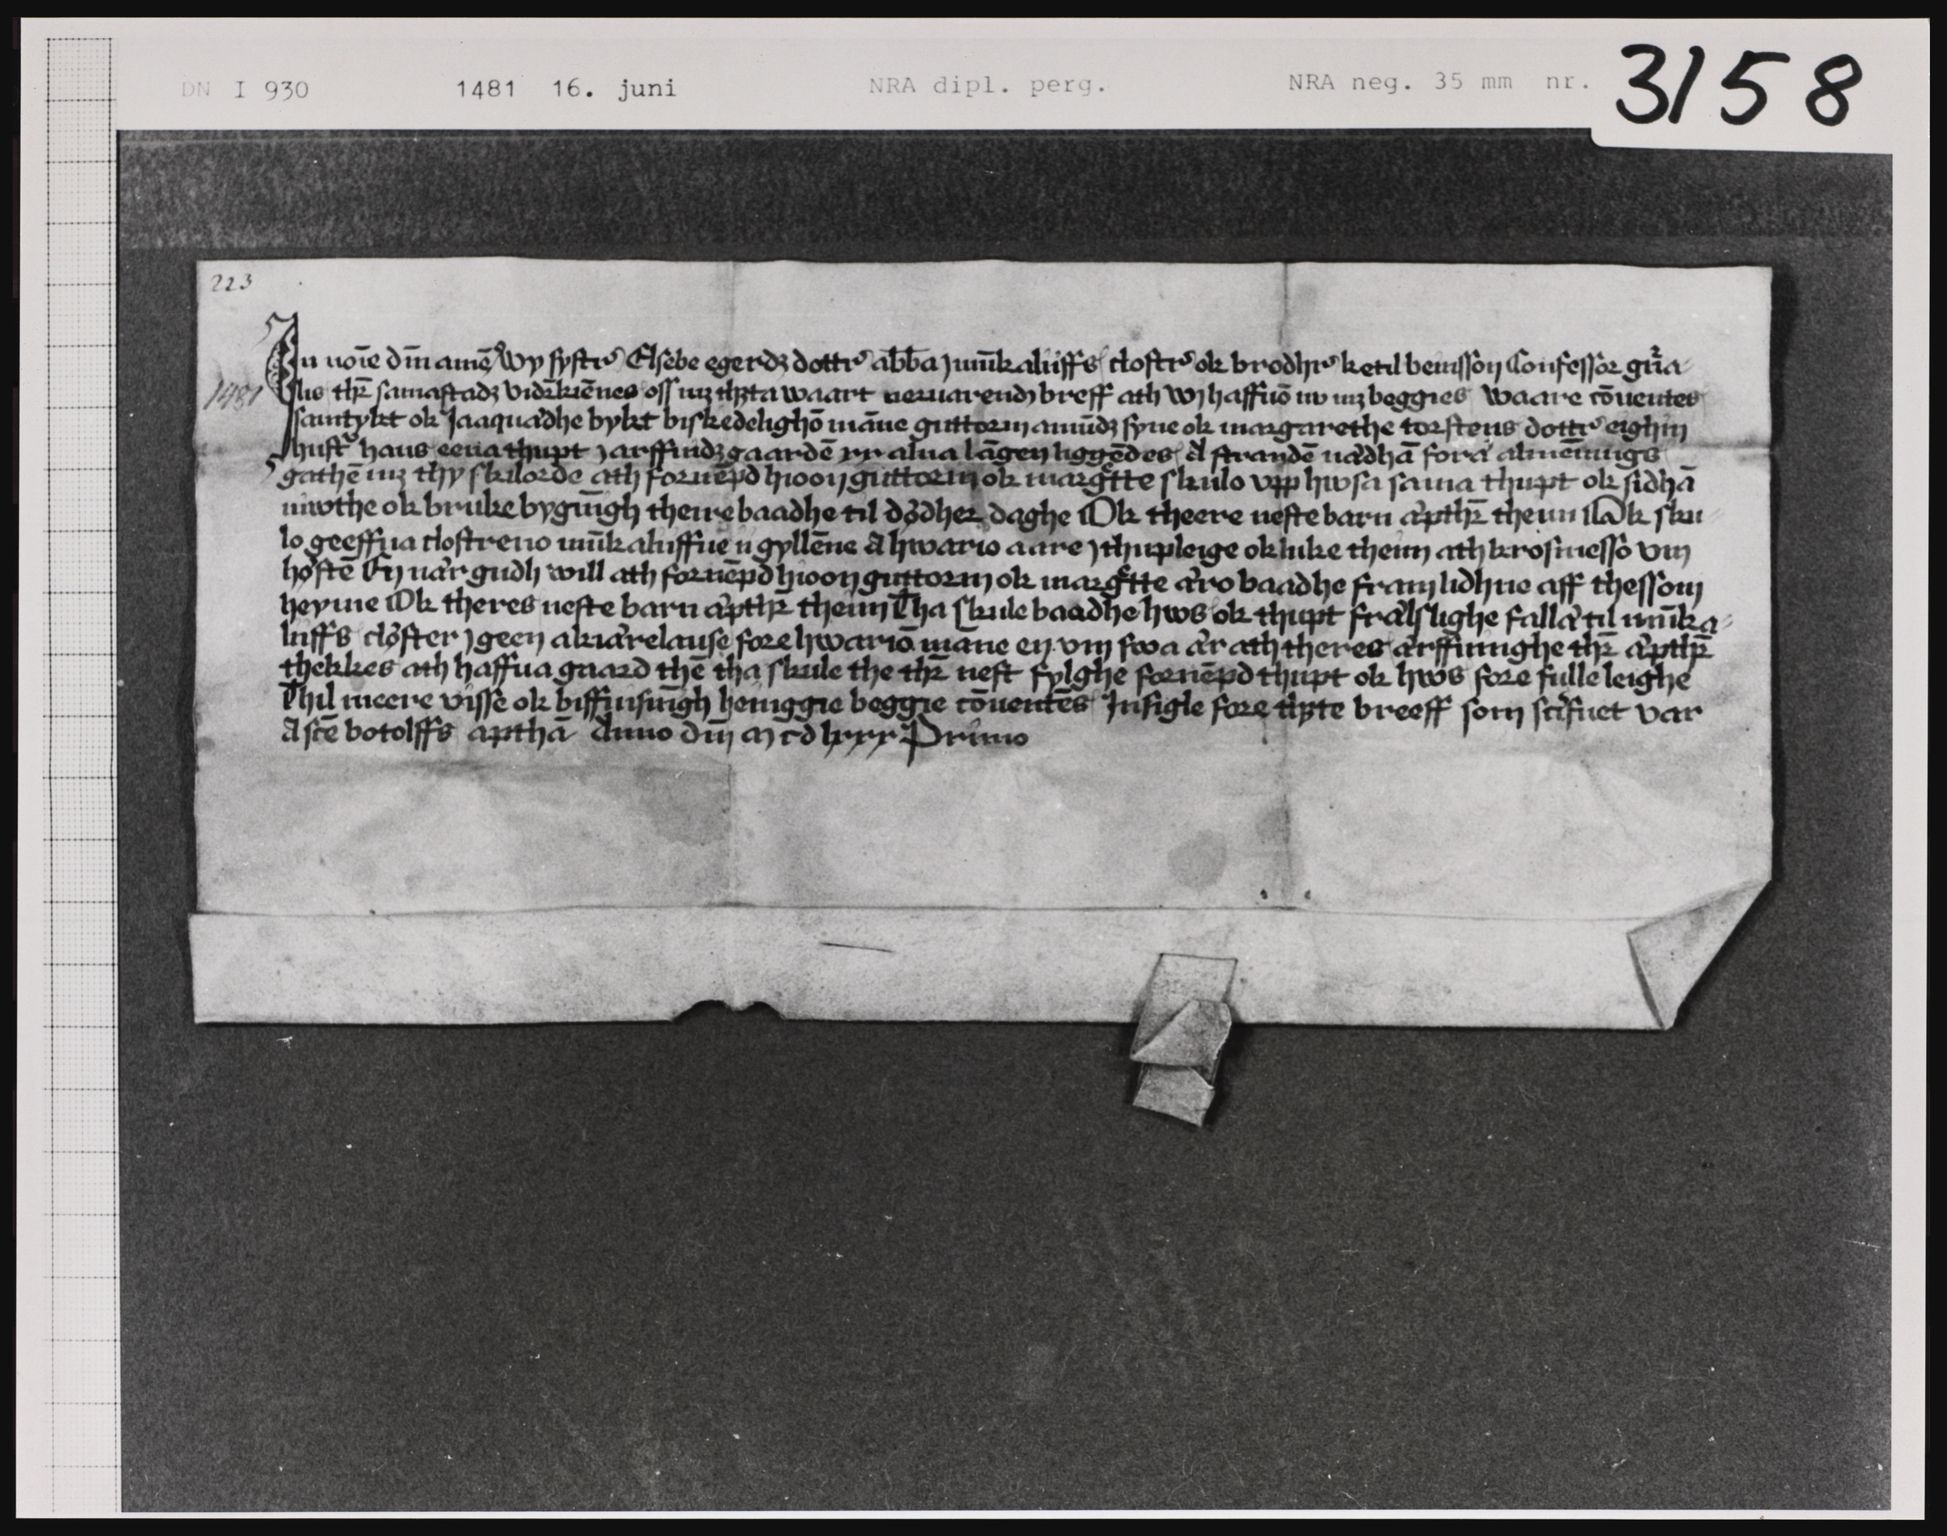 DN I 930 1481 16. juni NRA dipl. perg. NRA neg. 35 mm nr. 3158
223
1481
In noīe dn̄i amē Wy systr᷒ Elsebe egerdʒ dottr᷒ abb̄a j mūkaliiffs clostr᷒ ok brodhr᷒ ketil benisson Confessor gn̄ra-
lis thr̄ samastadʒ vidr̄kiēnes oss mʒ thʒta waart neruarendʒ breff ath wj haffuō nv mʒ beggies waare cōuentes
samtykt ok Jaaquædhe bykt biskedelighō māne guttorm amūdʒ syne ok margarethe torstens dottr᷒ eighin
hustr᷒ hans eena thupt j arffindʒgaardē xx alna lāgen liggēdes A strandē nædhā foræ almēnīngs
gathē mʒ thy skilorde ath fornēpd hioon guttorm ok margᵉtte skulo vpp hwsa sama thupt ok sidhā
niwthe ok bruke bygnīgh theire baadhe til døðher daghe Ok theere neste barn æpthr̄ thenn Ok sku-
lo geeffua clostreno mūkaliiffue ij gyllēne A hwario aare j thupleige ok luke thenn ath krosmesso vm
høstē En nær gudh will ath fornēpd hioon guttorm ok margᵉtte æro baadhe fram lidhne aff thessom
heyme Ok theres neste barn æpthr̄ thenn Tha skule baadhe hws ok thupt frælslighe fallæ til mūka-
liiffs closter j geen akiærelause fore hwariō māne en vm swa ær ath theres ærffuinghe thr̄ æpthr̄
thekkes ath haffua gaard thē tha skule the thr̄ nest fylghe fornēpd thupt ok hws fore fulle leighe
Thil meere visse ok biffinsnīgh henggie beggie cōuentēs Insigle fore thʒte breeff som scrifuet var
A scē botolffs apthā Anno dn̄j m cd lxxx Primo